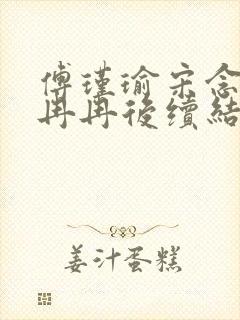 傅瑾瑜宋念
冉冉後續結
姜汁蛋糕